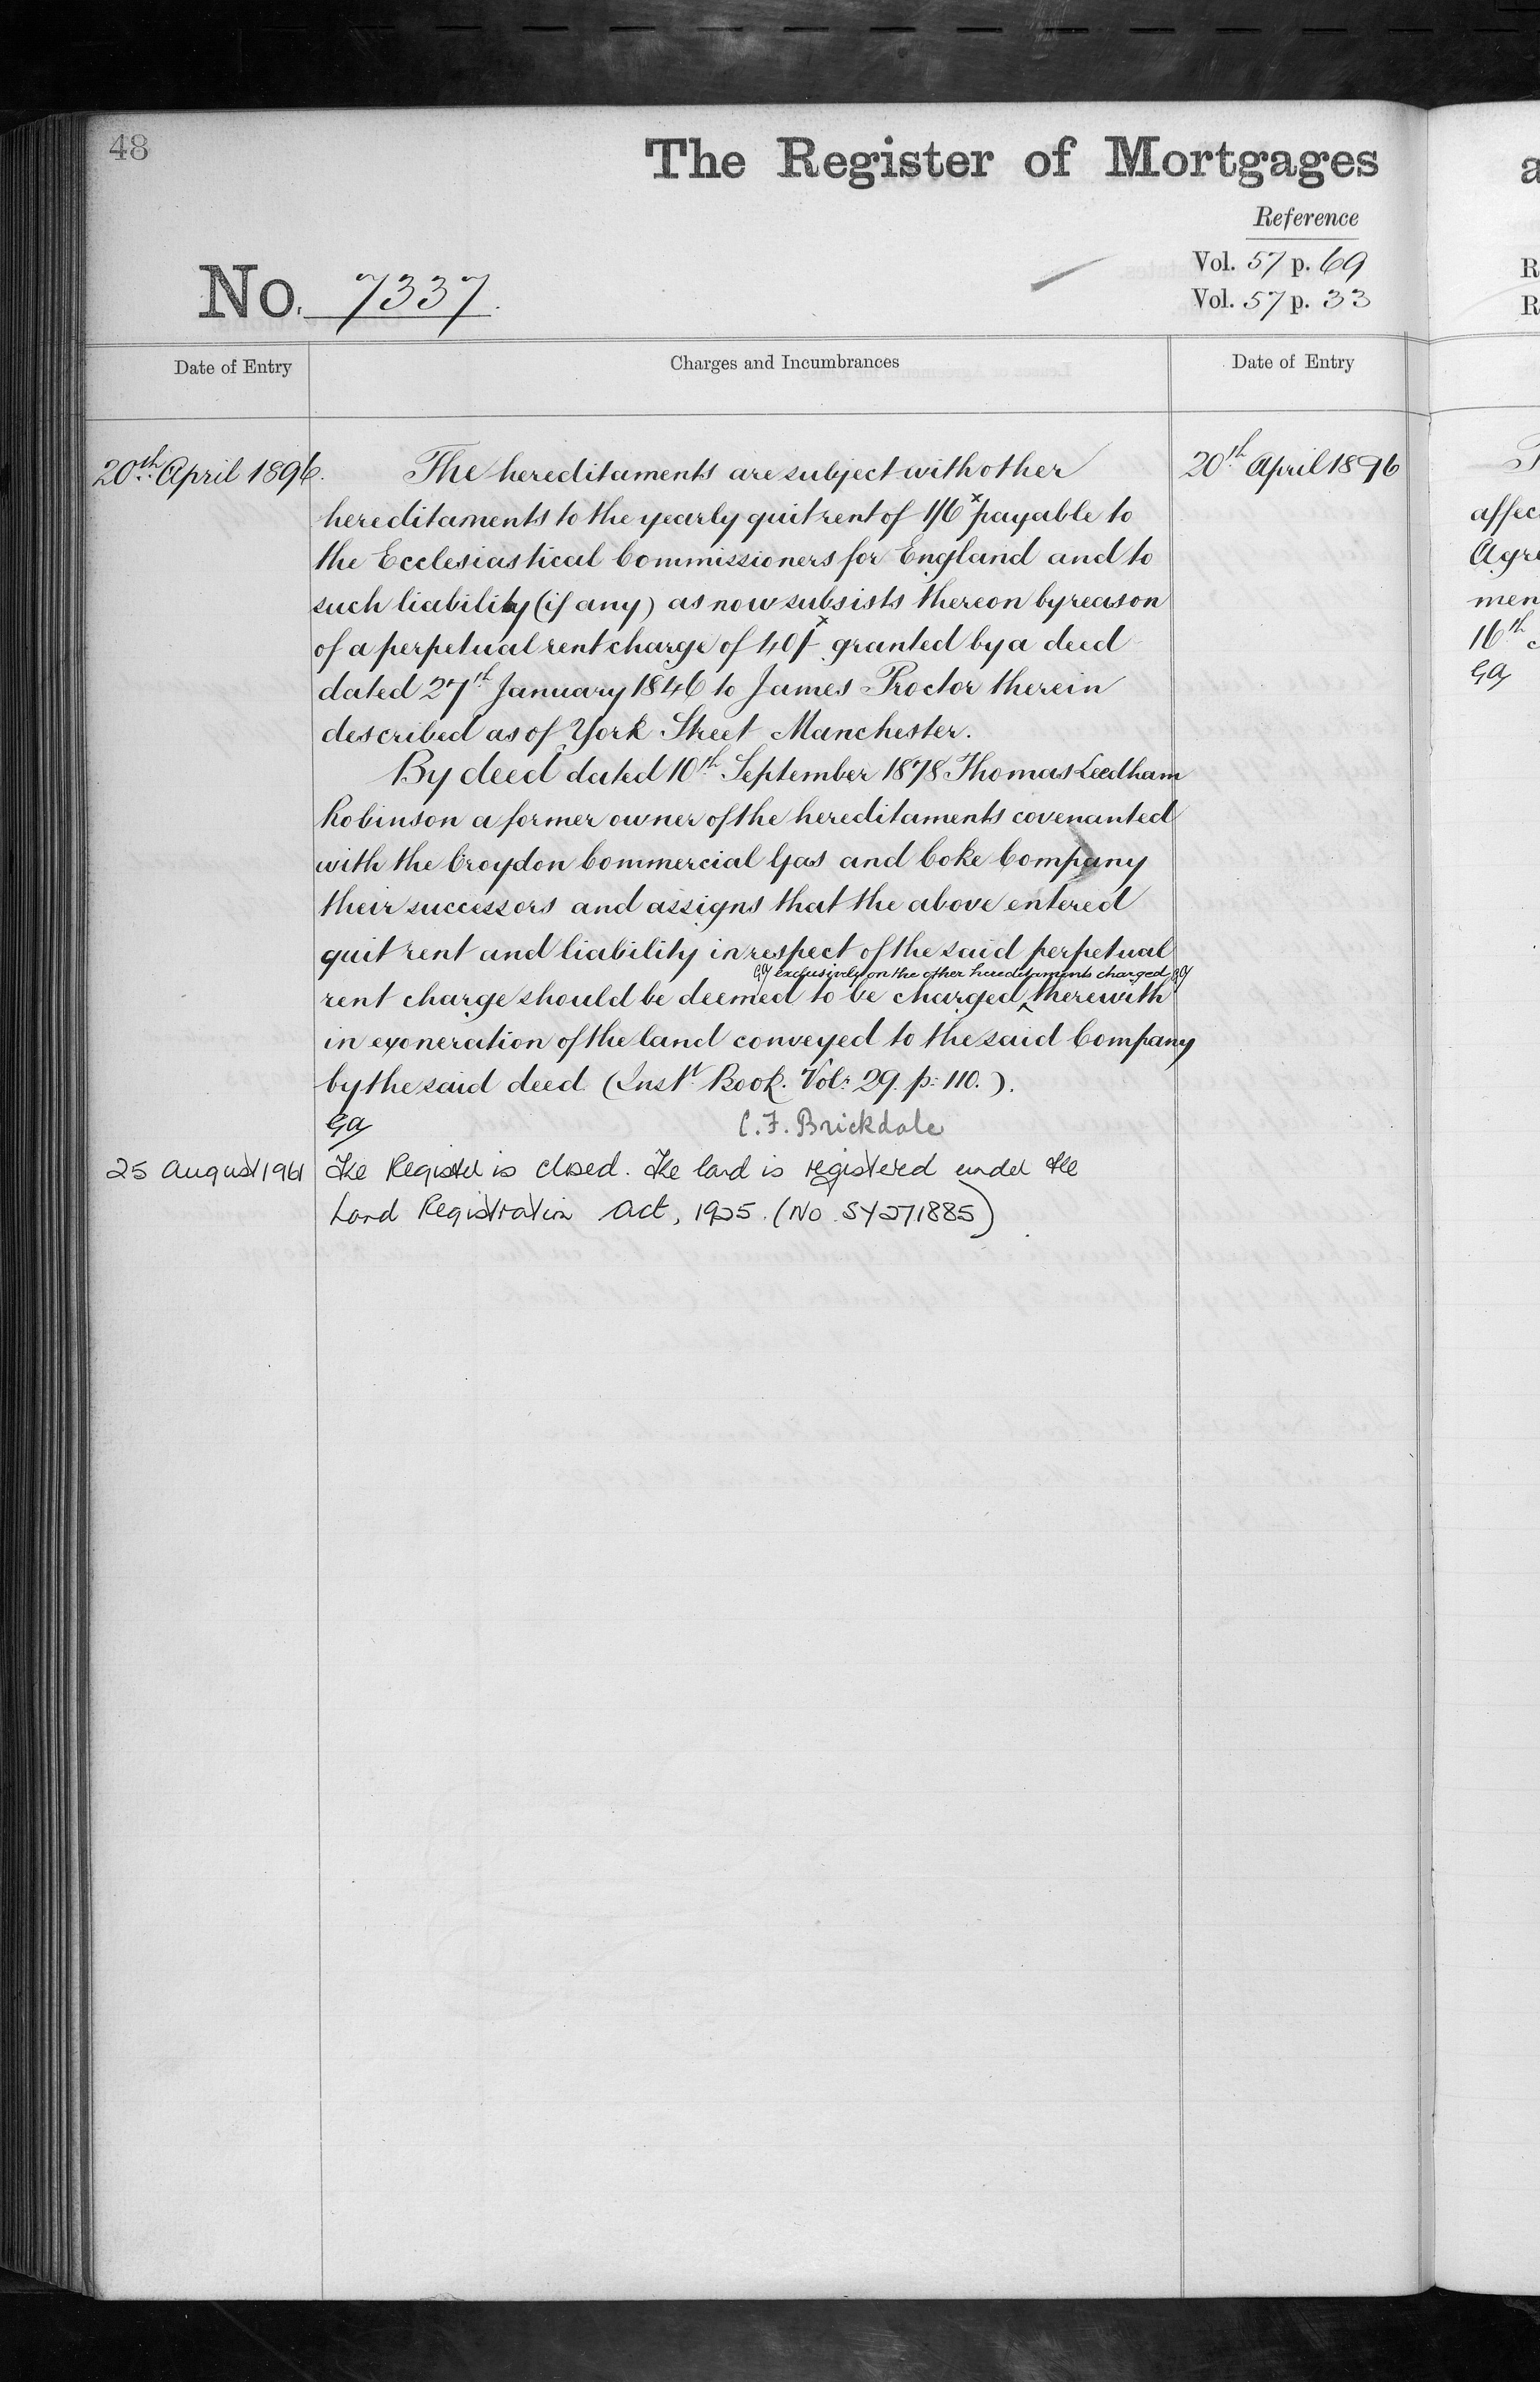 48
The Register of Mortgages
Reference
Vol. 57 p. 69
Vol. 57 p. 33
No. 7337.
Date of Entry
Charges and Incumbrances
Date of Entry
20th April 1896.
The hereditaments are subject with other
20th April 1896
hereditaments to the yearly quit rent of 1/6 x payable to
the Ecclesiastical Commissioners for England and to
such liability (if any) as now subsists thereon by reason
of a perpetual rent charge of 40/- x granted by a deed
dated 27th January 1846 to James Proctor therein
described as of York Street Manchester.
By deed dated 10th September 1878 Thomas Leedham
Robinson a former owner of the hereditaments covenanted
with the Croydon Commercial Gas and Coke Company
their successors and assigns that the above entered
quit rent and liability in respect of the said perpetual
GA exclusively on the other hereditaments charged GA
rent charge should be deemed to be charged ^ therewith
in exoneration of the land conveyed to the said Company
by the said deed (Inst. Book. Vol: 29. p: 110.).
GA
C. F. Brickdale
25 August 1961
The Register is closed. The land is registered under the
Land Registration Act, 1925. (No SY271885)
a
R
R
affec
Agre
men
16th
GA